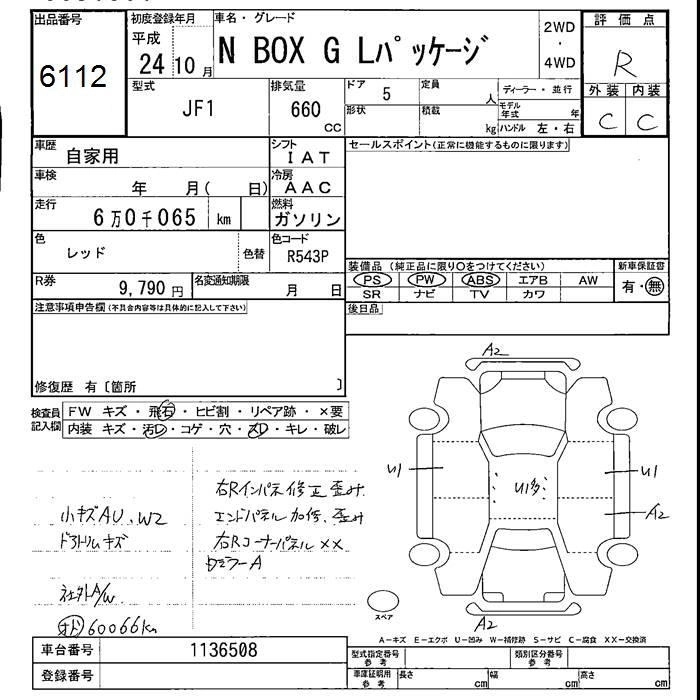 出品番号 初度登録年月 車名・グレード 2WD ・ 4WD 評価点
6112 平成 24 10月 N BOX G Lパッケージ R
型式 JF1 排気量 660 CC ドア 5 定員 人 ディーラー・並行 外装 内装
形状 積載 kg モデル年式 年 ハンドル 左・右 C C
車歴 自家用 シフト IAT セールスポイント(正常に機能するものに限ります)
車検 年 月( 日) 冷房 AAC
走行 6万0千065 km 燃料 ガソリン
色 レッド 色替 色コード R543P
R券 9,790円 名変通知期限 月 日
装備品 (純正品に限り○をつけてください) 新車保証書
PS PW ABS エアB AW 有・無
SR ナビ TV カワ
注意事項申告欄(不具合内容等は具体的に記入して下さい) 後日品
修復歴 有〔箇所 〕
検査員記入欄 FW キズ・飛石・ヒビ割・リペア跡・×要
内装 キズ・汚レ・コゲ・穴・スレ・キレ・破レ
右Rインパネ修正歪み
小キズAU、W2 エンドパネル加修、歪み
ドアトリムキズ 右Rコーナーパネル××
ミラーA
社外A/W
60066km
A2
U1 U1多 U1
A2
スペア A2
A-キズ E-エクボ U-凹み W-補修跡 S-サビ C-腐食 XX-交換済
車台番号 1136508 型式指定番号 参考 類別区分番号 参考
登録番号 車庫証明用 参考 長さ cm 幅 cm 高さ cm